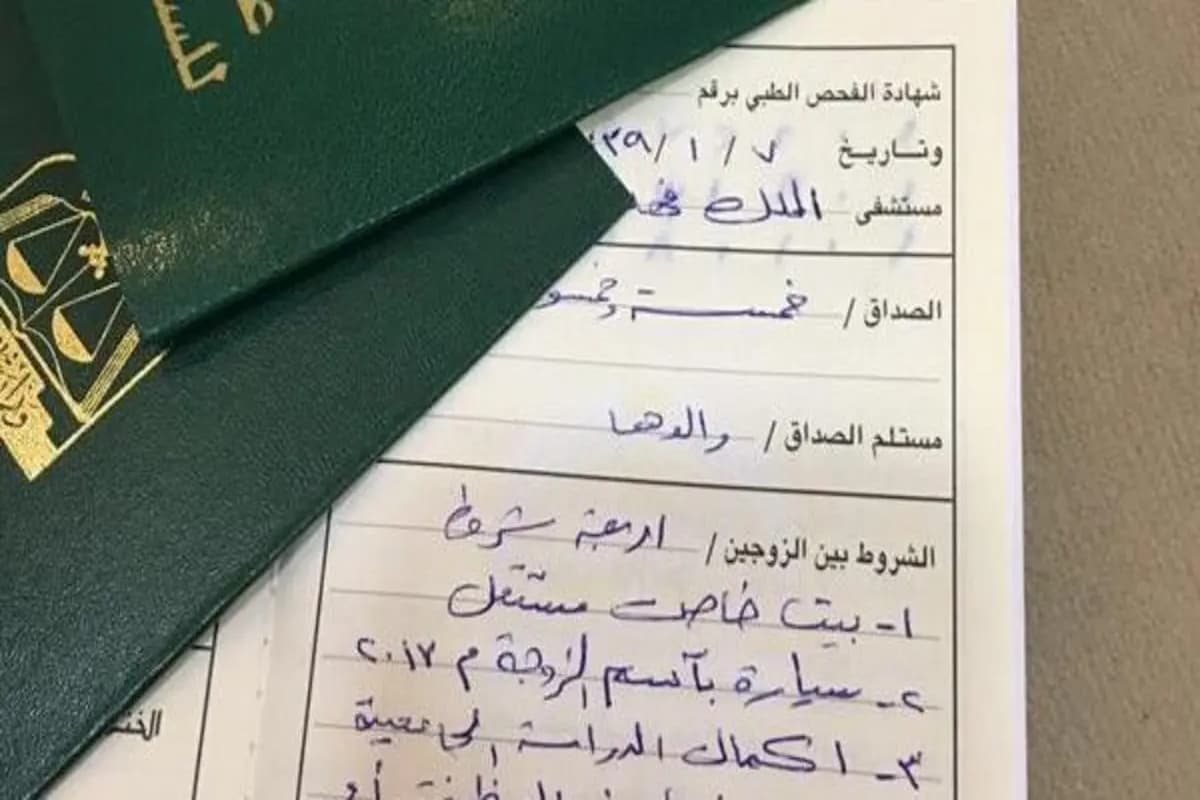 شهادة الفحص الطبي برقم
وتـاريـخ ٧ / ١ / ٣٩
مستشفى الملك فهد
الصداق / خمسة وخمسو
مستلم الصداق / والدها
الشروط بين الزوجين / اربعة شروط
١- بيت خاص مستقل
٢- سيارة بآسم الزوجة م ٢٠١٧
٣- اكمال الدراسة الجامعية
أو